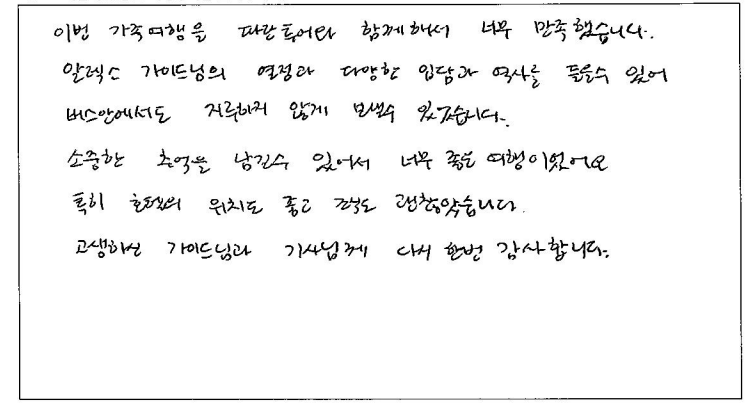 이번 가족여행을 파란투어와 함께해서 너무 만족했습니다.
알렉스 가이드님의 열정과 다양한 입담과 역사를 들을수 있어
버스안에서도 지루하지 않게 보낼수 있었습니다.
소중한 추억을 남길수 있어서 너무 좋은 여행이었어요
특히 호텔의 위치도 좋고 조식도 괜찮았습니다.
고생하신 가이드님과 기사님께 다시 한번 감사합니다.